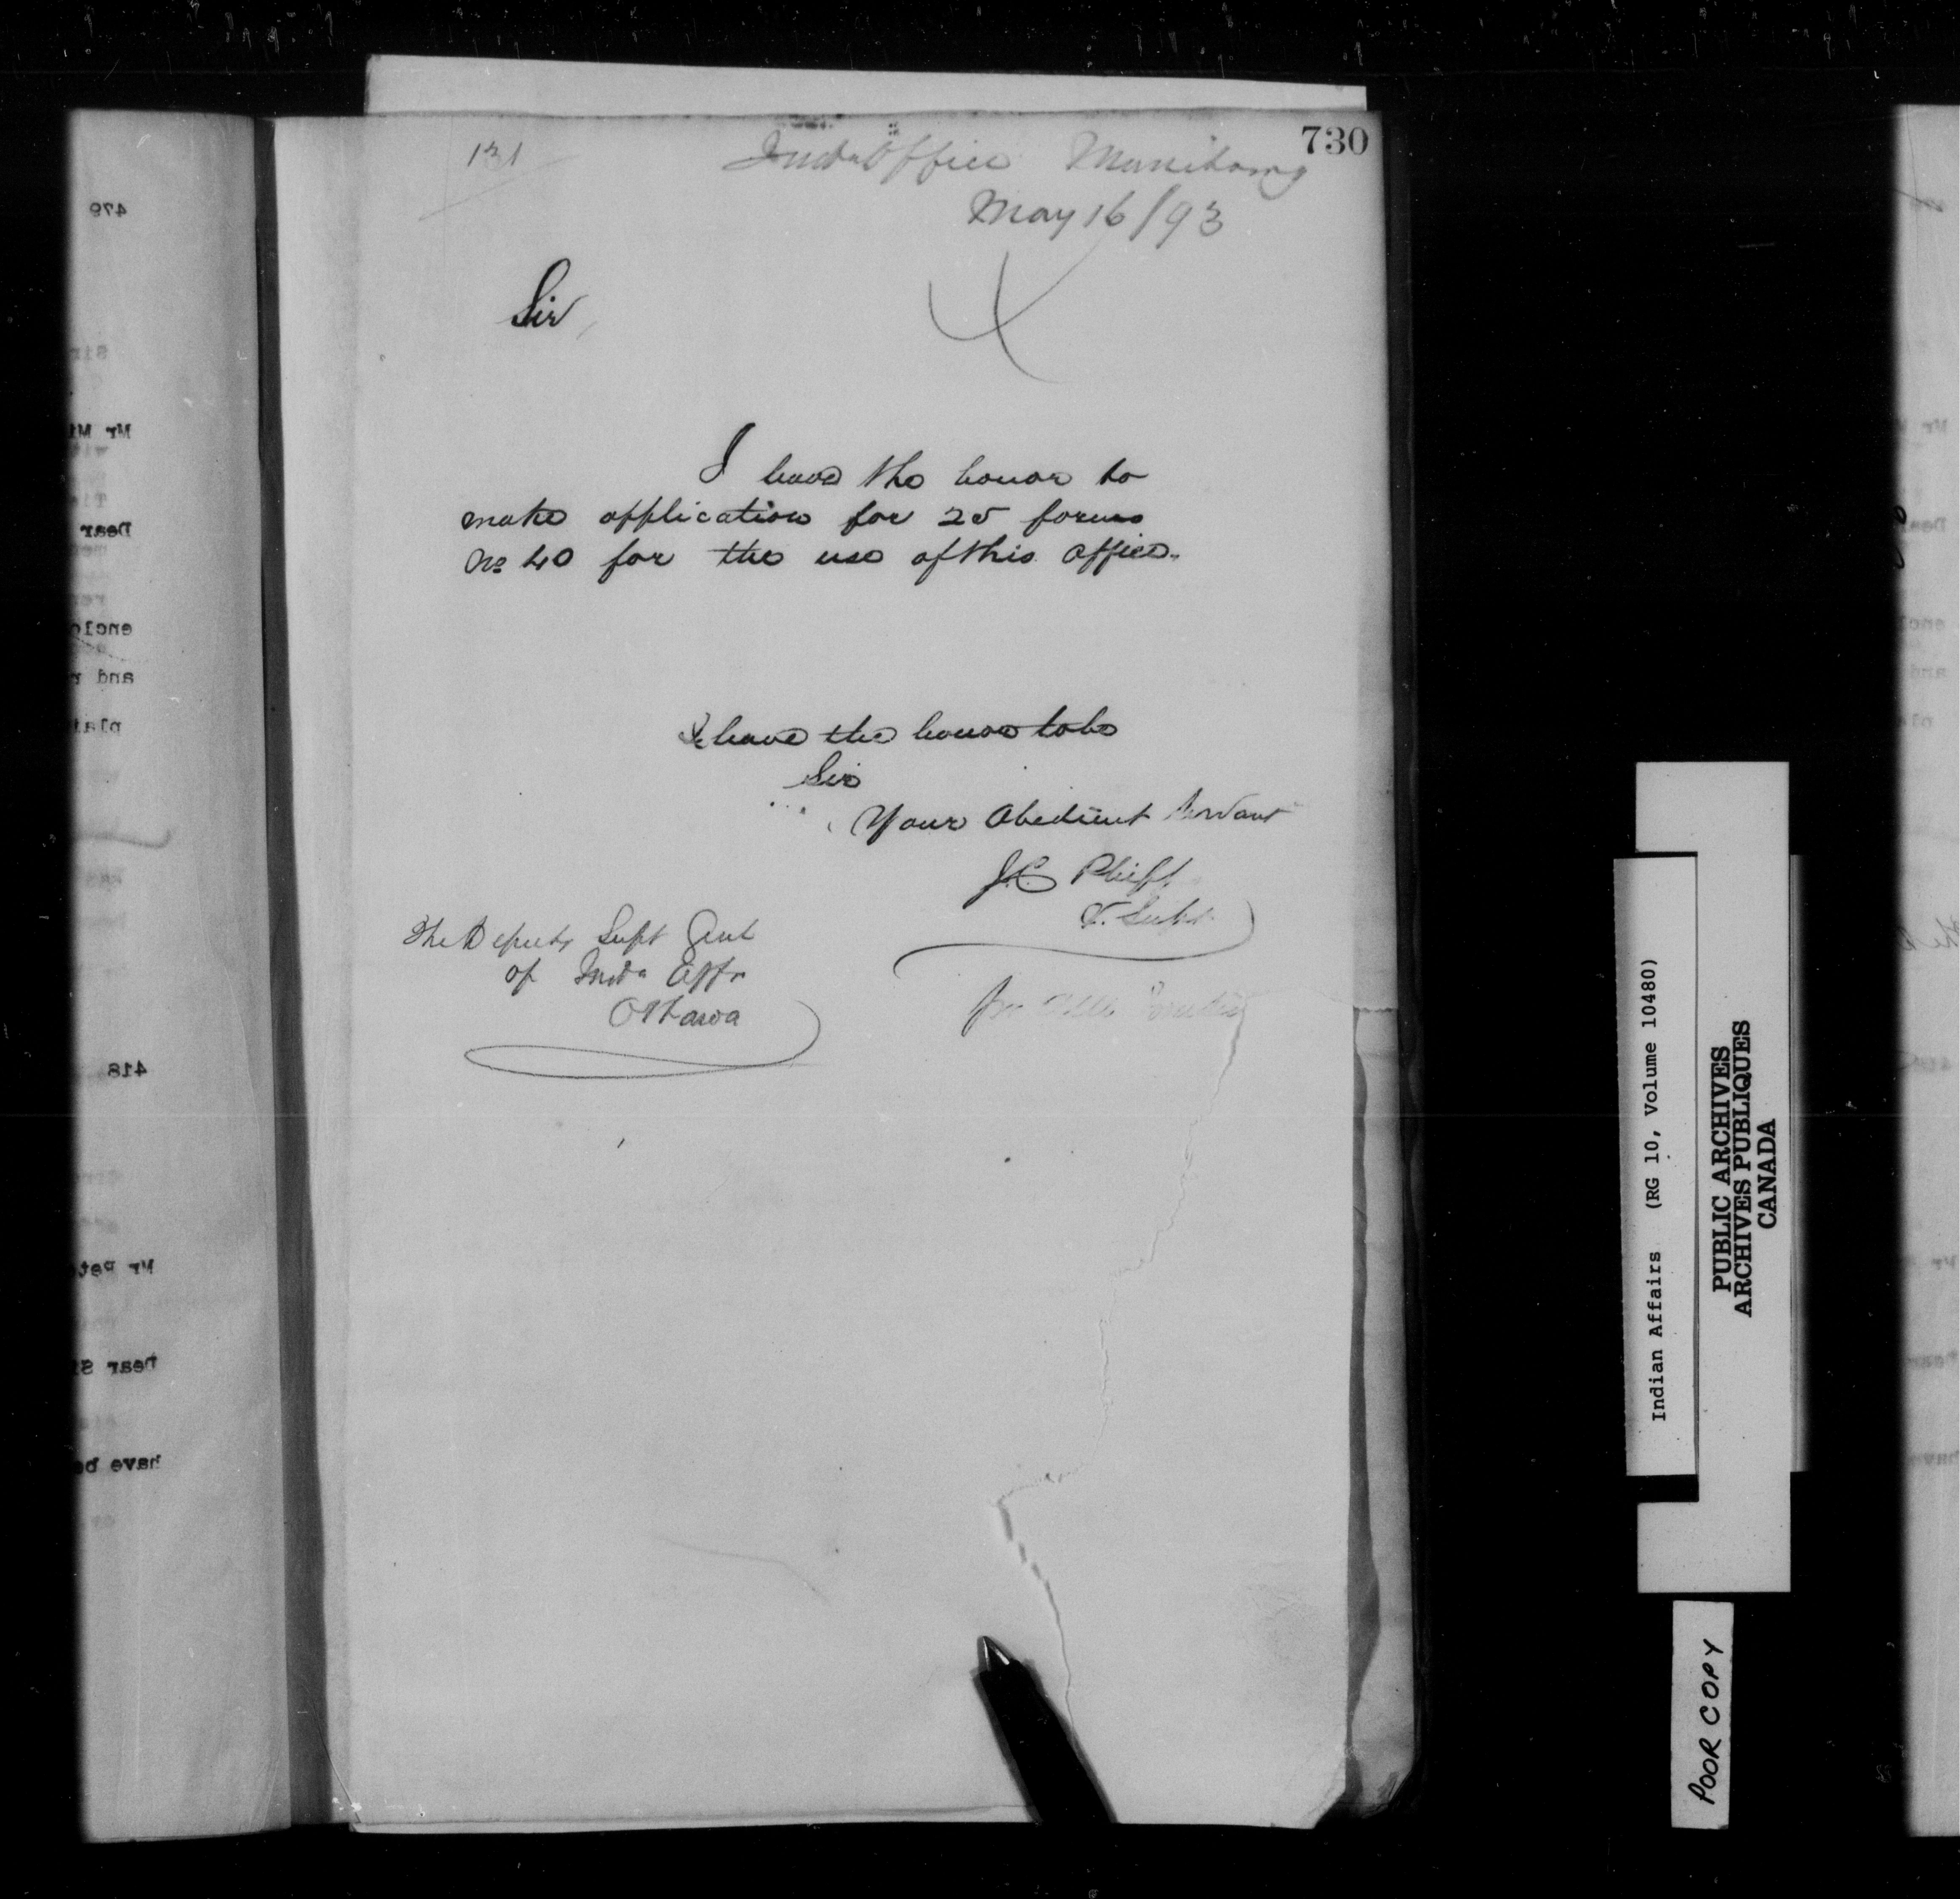 730
131
Inda Office Manitowng
May 16/93
Sir
I have the honor to
make application for 25 forms
No 40 for the use of this office.
I have the honor to be
Sir
Your Obedient Servant
J.C. Phipps
V. Supt.
The Deputy Supt Genl
of Inda Affrs
Ottawa
479
Mr Mi
Dear
enclo
and
plai
418
Mr Pete
Dear Si
have be
Indian Affairs (RG 10, Volume 10480)
PUBLIC ARCHIVES
ARCHIVES PUBLIQUES
CANADA
POOR COPY